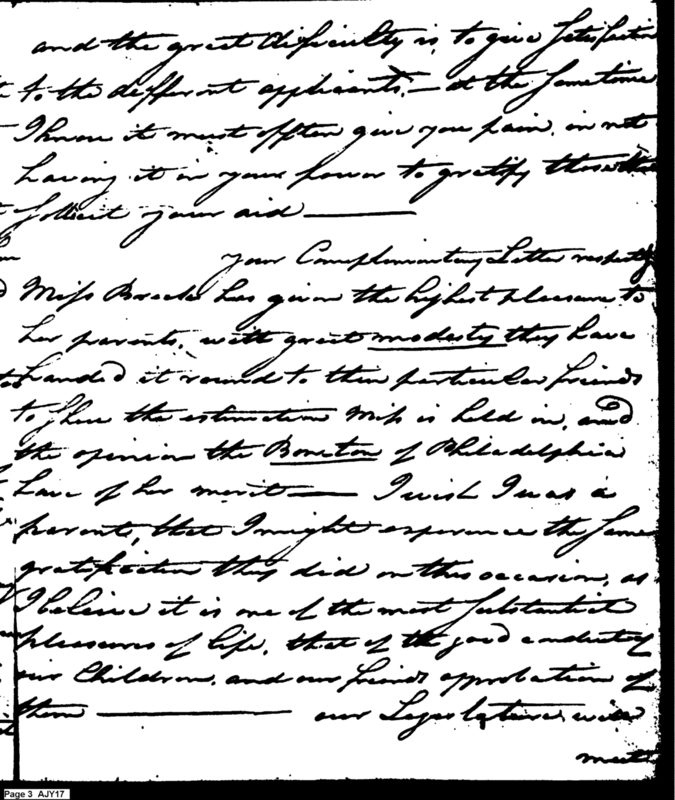 and the great difficulty is, to give Satisfaction
to the different applicants,— at the Sametime
I know it must often give you pain, in not
having it in your power to gratify those
Sollicit your aid ———
your Complimentary Letter respectg
Miss has given the highest pleasure to
her parents, with great modesty they have
handed it round to their particular friends
to Shew the estimation Miss is held in, and
the opinion the Bonton of Philadelphia
have of her merit —— I wish I was a
parent, that I might experence the Same
gratification they did on this occasion, as
I beleive it is one of the most Substantial
pleasures of life, that of the good conduct of
our Children, and our friends approbation of
them ——— our Legislature will
meet
Page 3 AJY17